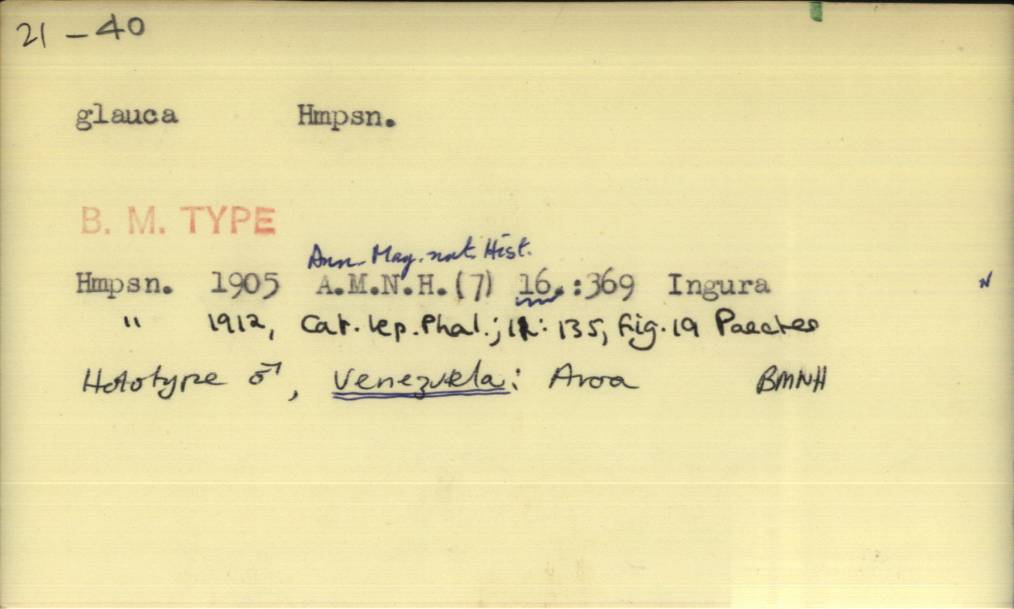 21 - 40
glauca Hmpsn.
B. M. TYPE
Ann. Mag. nat. Hist.
Hmpsn. 1905 A.M.N.H.(7) 16.:369 Ingura
" 1912, Cat. Lep. Phal.; 11: 135, fig. 19 Paectes
Holotype ♂, Venezuela: Aroa BMNH